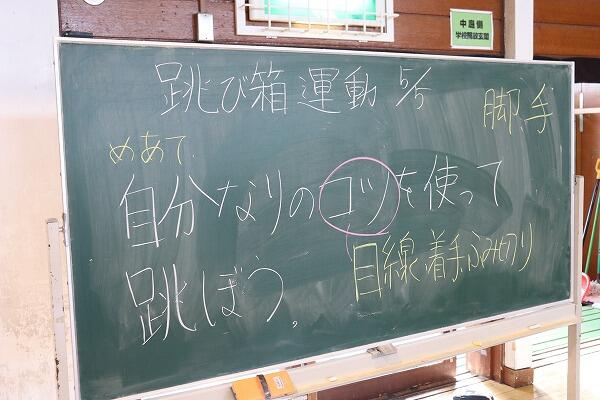 中島側
学校開放玄関
跳び箱運動 5/5
脚 手
めあて
自分なりのコツを使って
目線 着手 ふみ切り
跳ぼう。